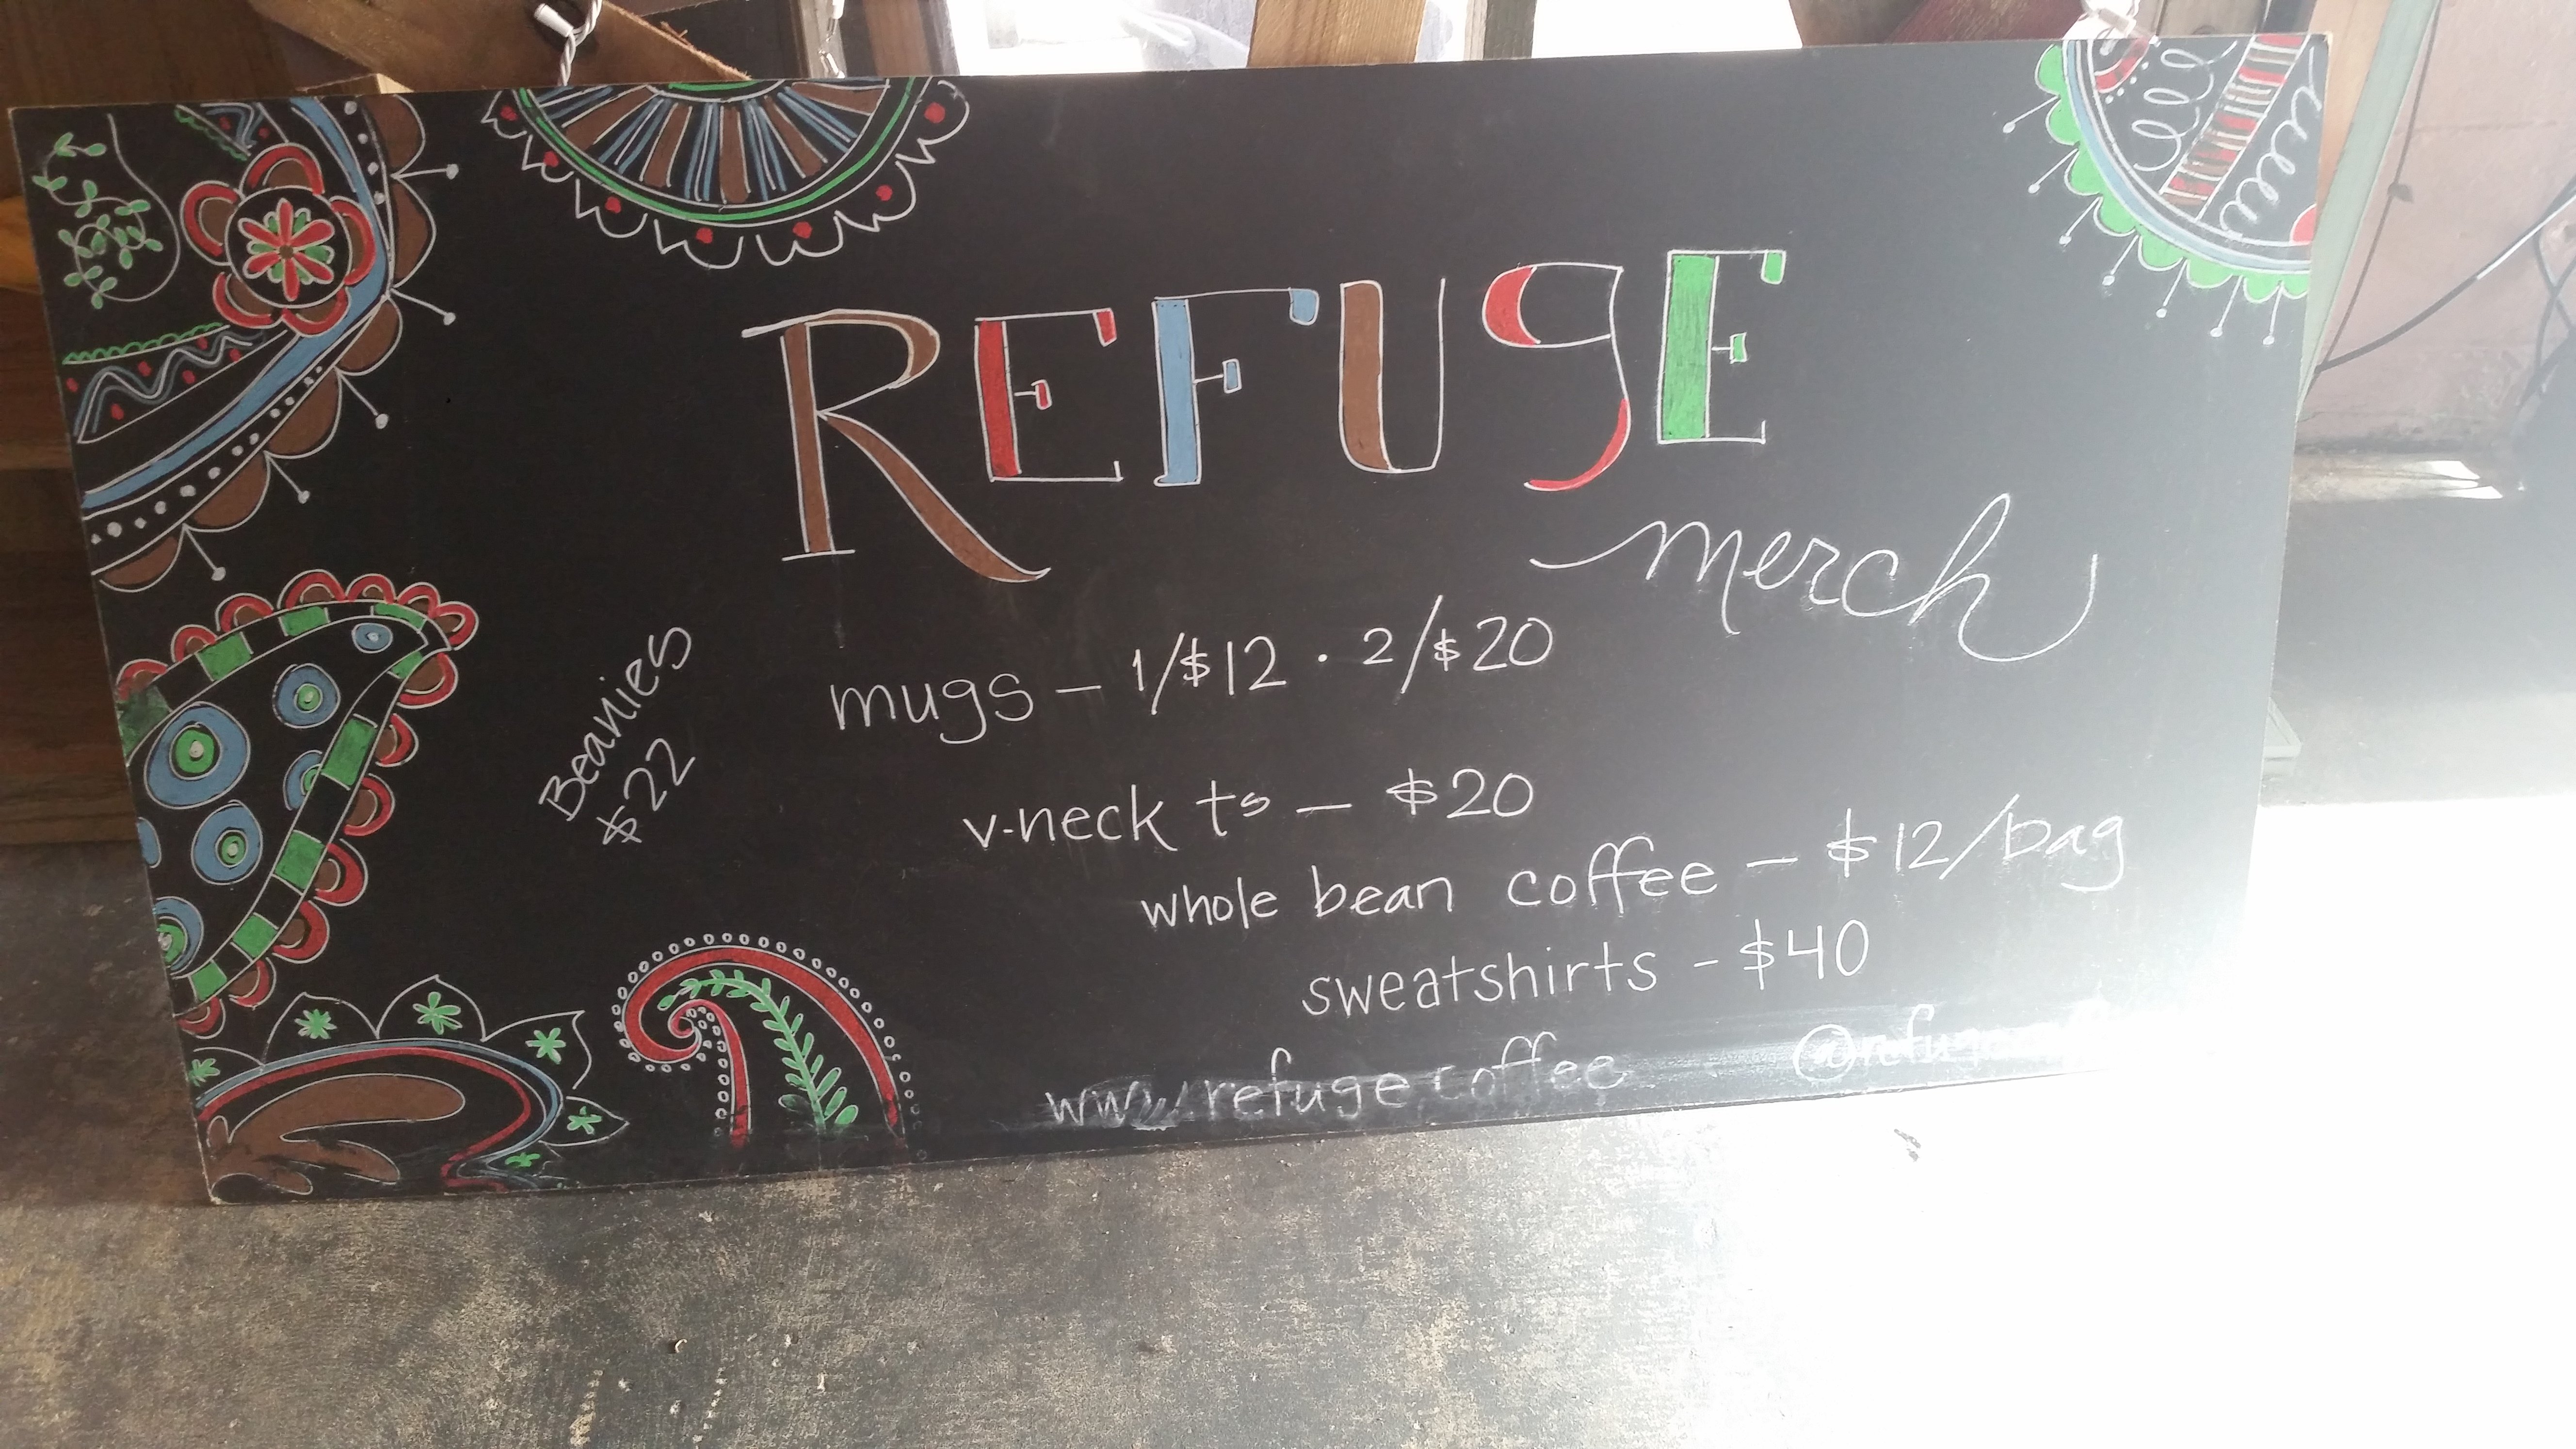 REFUgE
merch
mugs – 1/$12 · 2/$20
Beanies
$22
v-neck ts – $20
whole bean coffee – $12/bag
sweatshirts - $40
www.refuge.coffee